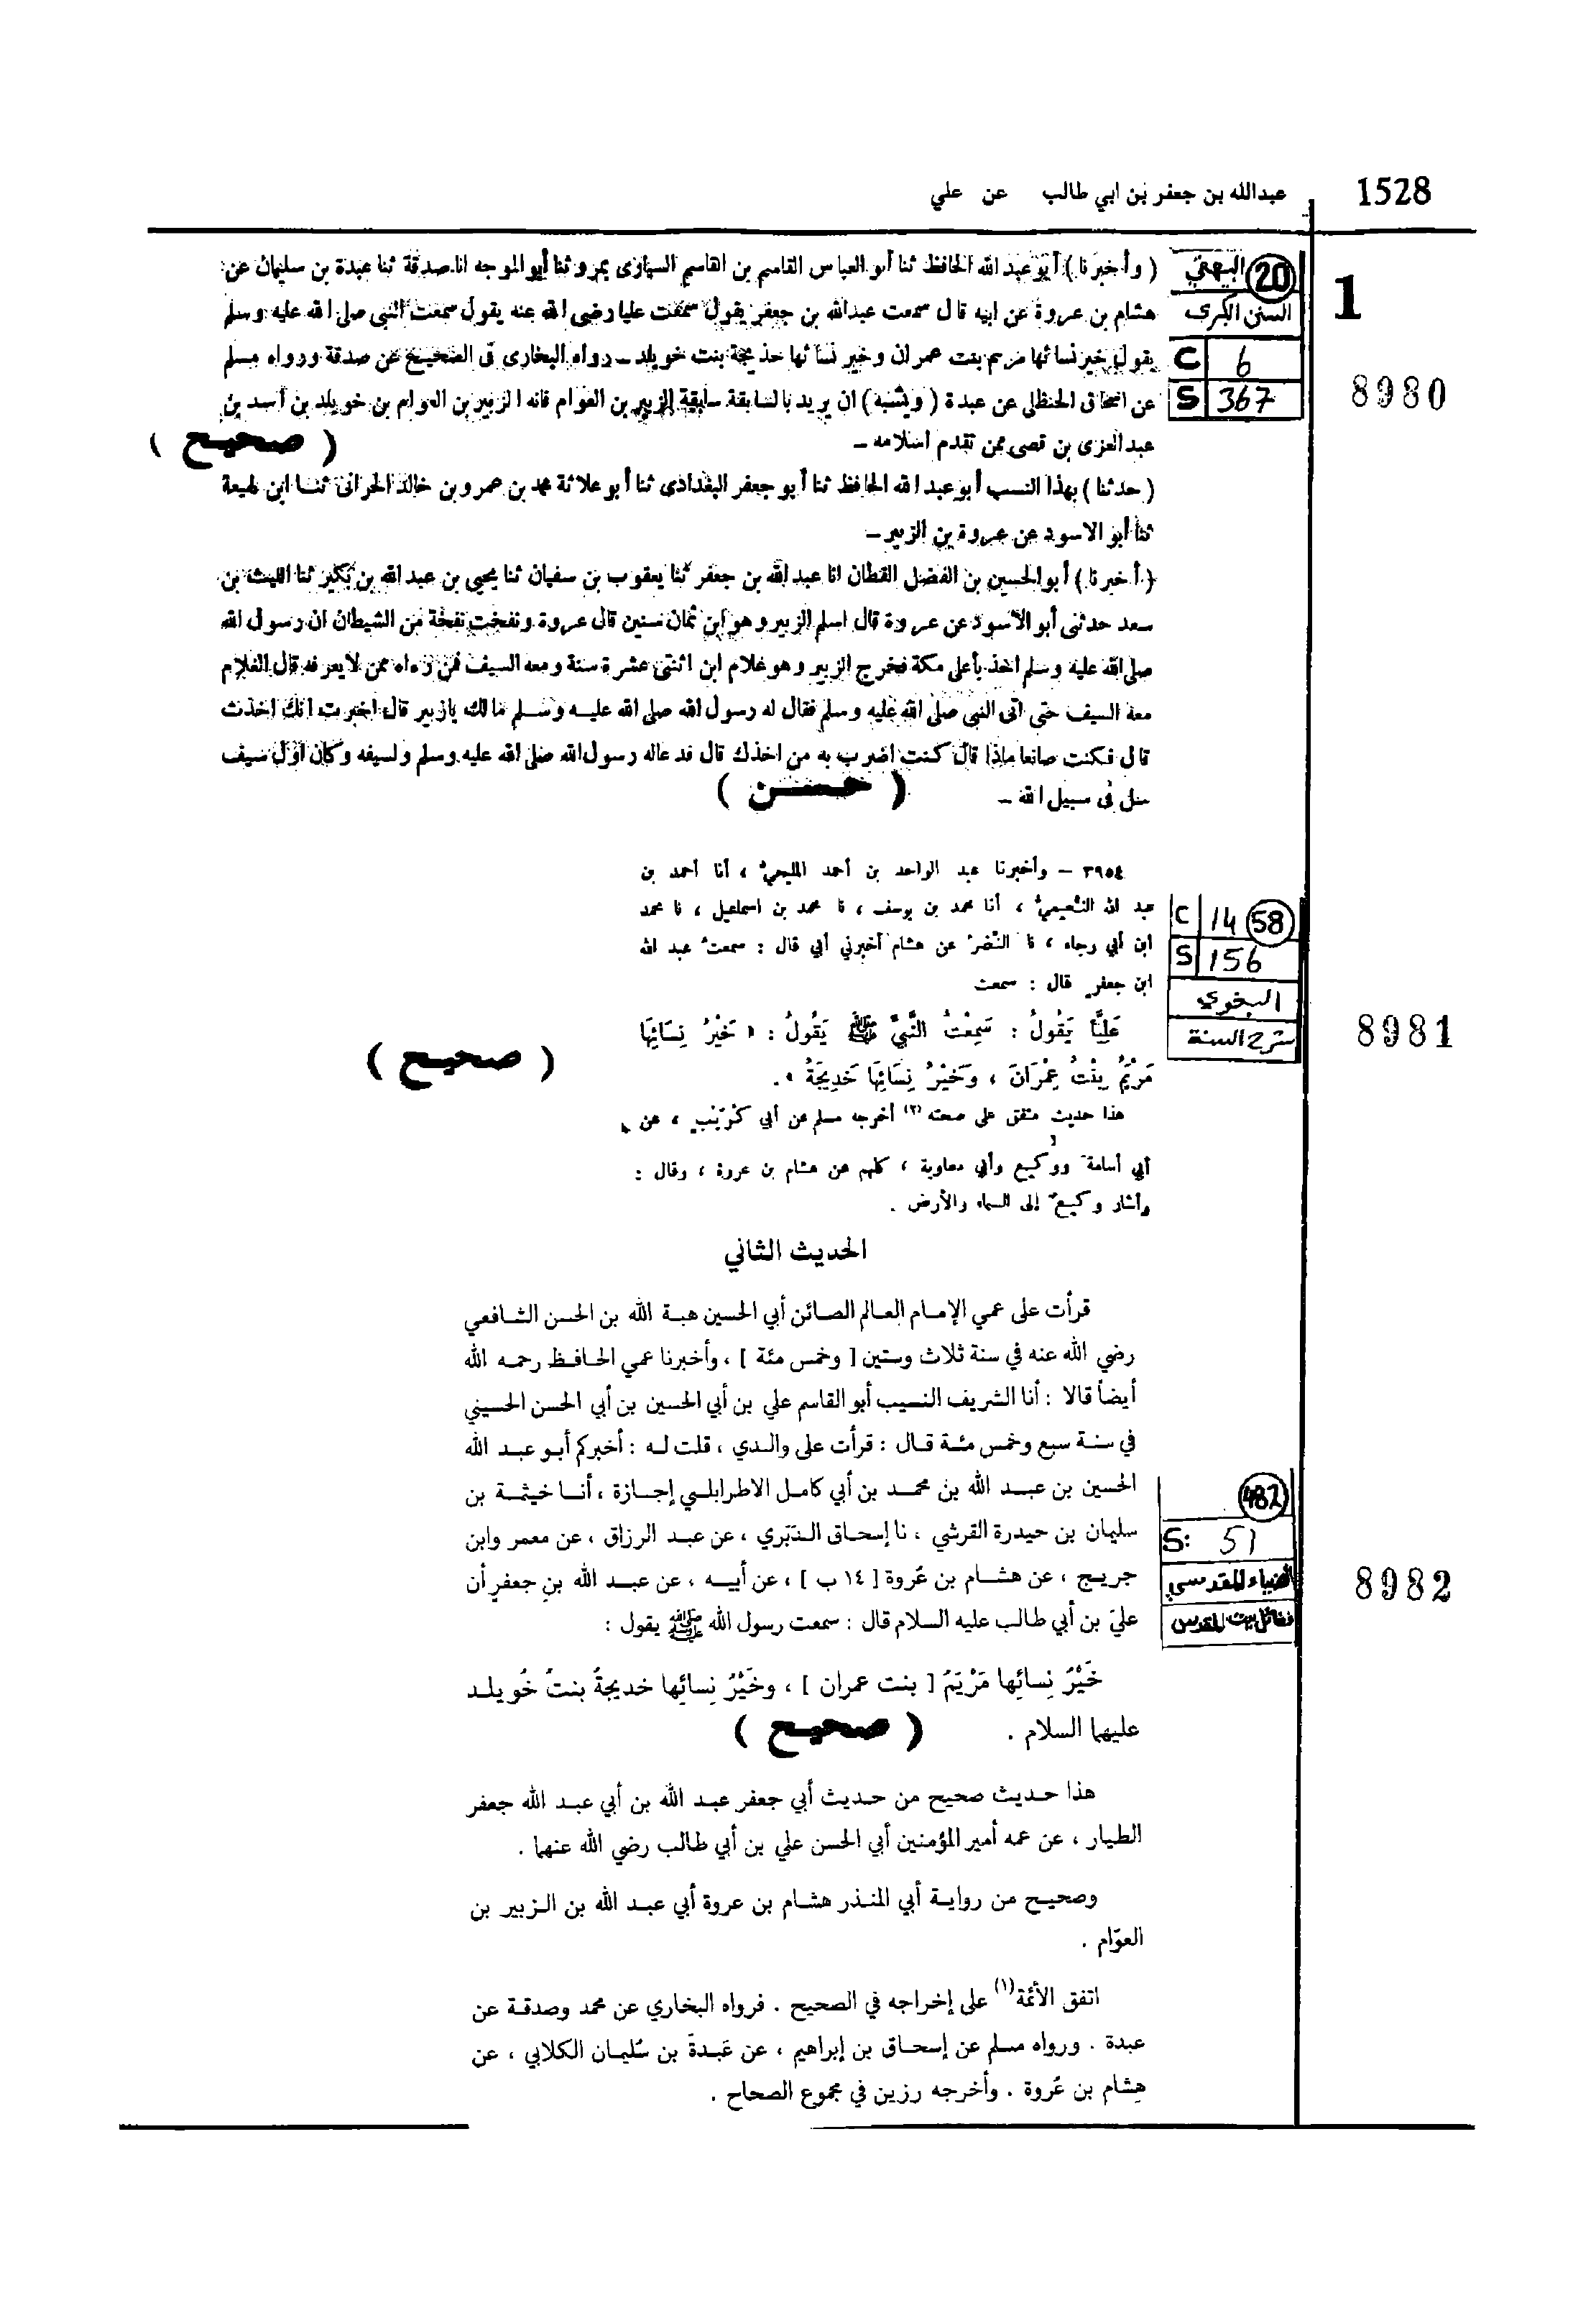 1528
عبدالله بن جعفر بن ابي طالب عن علي
1
8980
20 البيهقي
السنن الكبرى
C 6
S 367
( وأخبرنا ) أبو عبد الله الحافظ ثنا أبو العباس القاسم بن القاسم السيارى بمرو ثنا أبو الموجه انا صدقة ثنا عبدة بن سليمان عن
هشام بن عروة عن ابيه قال سمعت عبدالله بن جعفر يقول سمعت عليا رضى الله عنه يقول سمعت النبى صلى الله عليه وسلم
يقول خير نسائها مريم بنت عمران وخير نسائها خديجة بنت خويلد ـ رواه البخارى فى الصحيح عن صدقة ورواه مسلم
عن اسحاق الحنظلى عن عبدة ( ويشبه ) ان يريد بالسابقة سابقة الزبير بن العوام فانه الزبير بن العوام بن خويلد بن أسد بن
عبد العزى بن قصى ممن تقدم اسلامه ـ
( صحيح )
( حدثنا ) بهذا النسب أبو عبد الله الحافظ ثنا أبو جعفر البغدادى ثنا أبو علاثة محمد بن عمرو بن خالد الحرانى ثنا ابن لهيعة
ثنا أبو الاسود عن عروة بن الزبير ـ
( أخبرنا ) أبو الحسين بن الفضل القطان انا عبد الله بن جعفر ثنا يعقوب بن سفيان ثنا يحيى بن عبد الله بن بكير ثنا الليث بن
سعد حدثنى أبو الاسود عن عروة قال اسلم الزبير وهو ابن ثمان سنين قال عروة ونفخت نفخة من الشيطان ان رسول الله
صلى الله عليه وسلم اخذ بأعلى مكة فخرج الزبير وهو غلام ابن اثنتى عشرة سنة ومعه السيف فمن رءاه ممن لا يعرفه قال الغلام
معه السيف حتى اتى النبى صلى الله عليه وسلم فقال له رسول الله صلى الله عليه وسلم مالك يازبير قال اخبرت انك اخذت
قال فكنت صانعا ماذا قال كنت اضرب به من اخذك قال فدعاله رسول الله صلى الله عليه وسلم ولسيفه وكان اول سيف
سل فى سبيل الله ـ
( حسن )
C 14 58
S 156
البغوي
شرح السنة
8981
٣٩٥٤ - وأخبرنا عبد الواحد بن أحمد المليحيُّ ، أنا أحمد بن
عبد الله النُّعيميُّ ، أنا محمد بن يوسف ، نا محمد بن اسماعيل ، نا محمد
ابن أبي رجاء ، نا النَّضرُ عن هشام أخبرني أبي قال : سمعتُ عبد الله
ابن جعفرٍ قال : سمعت
عَلِيَّاً يَقُولُ : سَمِعْتُ النَّبِيَّ ﷺ يَقُولُ : « خَيْرُ نِسَائِهَا
مَرْيَمُ بِنْتُ عِمْرَانَ ، وَخَيْرُ نِسَائِهَا خَدِيجَةُ » .
( صحيح )
هذا حديث متفق على صحته (٢) أخرجه مسلم عن أبي كُرَيْبٍ ، عن
أبي أسامة ووكيع وأبي معاوية ، كلهم عن هشام بن عروة ، وقال :
وأشار وكيعٌ إلى السماء والأرض .
الحديث الثاني
قرأت على عمي الإمام العالم الصائن أبي الحسين هبة الله بن الحسن الشافعي
رضي الله عنه في سنة ثلاث وستين [ وخمس مئة ] ، وأخبرنا عمي الحافظ رحمه الله
أيضاً قالا : أنا الشريف النسيب أبو القاسم علي بن أبي الحسين بن أبي الحسن الحسيني
في سنة سبع وخمس مئة قال : قرأت على والدي ، قلت له : أخبركم أبو عبد الله
الحسين بن عبد الله بن محمد بن أبي كامل الاطرابلسي إجازة ، أنا خيثمة بن
سليمان بن حيدرة القرشي ، نا إسحاق الدَّبَري ، عن عبد الرزاق ، عن معمر وابن
جريج ، عن هشام بن عُروة [ ١٤ ب ] ، عن أبيه ، عن عبد الله بن جعفر أن
عليّ بن أبي طالب عليه السلام قال : سمعت رسول الله ﷺ يقول :
482
S: 51
الضياء المقدسي
فضائل بيت المقدس
8982
خَيْرُ نِسائِها مَرْيَمُ [ بنت عمران ] ، وخَيْرُ نِسائِها خديجةُ بنتُ خُويلد
عليهما السلام .
( صحيح )
هذا حديث صحيح من حديث أبي جعفر عبد الله بن أبي عبد الله جعفر
الطيار ، عن عمه أمير المؤمنين أبي الحسن علي بن أبي طالب رضي الله عنهما .
وصحيح من رواية أبي المنذر هشام بن عروة أبي عبد الله بن الزبير بن
العوّام .
اتفق الأئمة(١) على إخراجه في الصحيح . فرواه البخاري عن محمد وصدقة عن
عبدة . ورواه مسلم عن إسحاق بن إبراهيم ، عن عَبدةَ بن سُليمان الكلابي ، عن
هِشام بن عُروة . وأخرجه رزين في مجموع الصحاح .